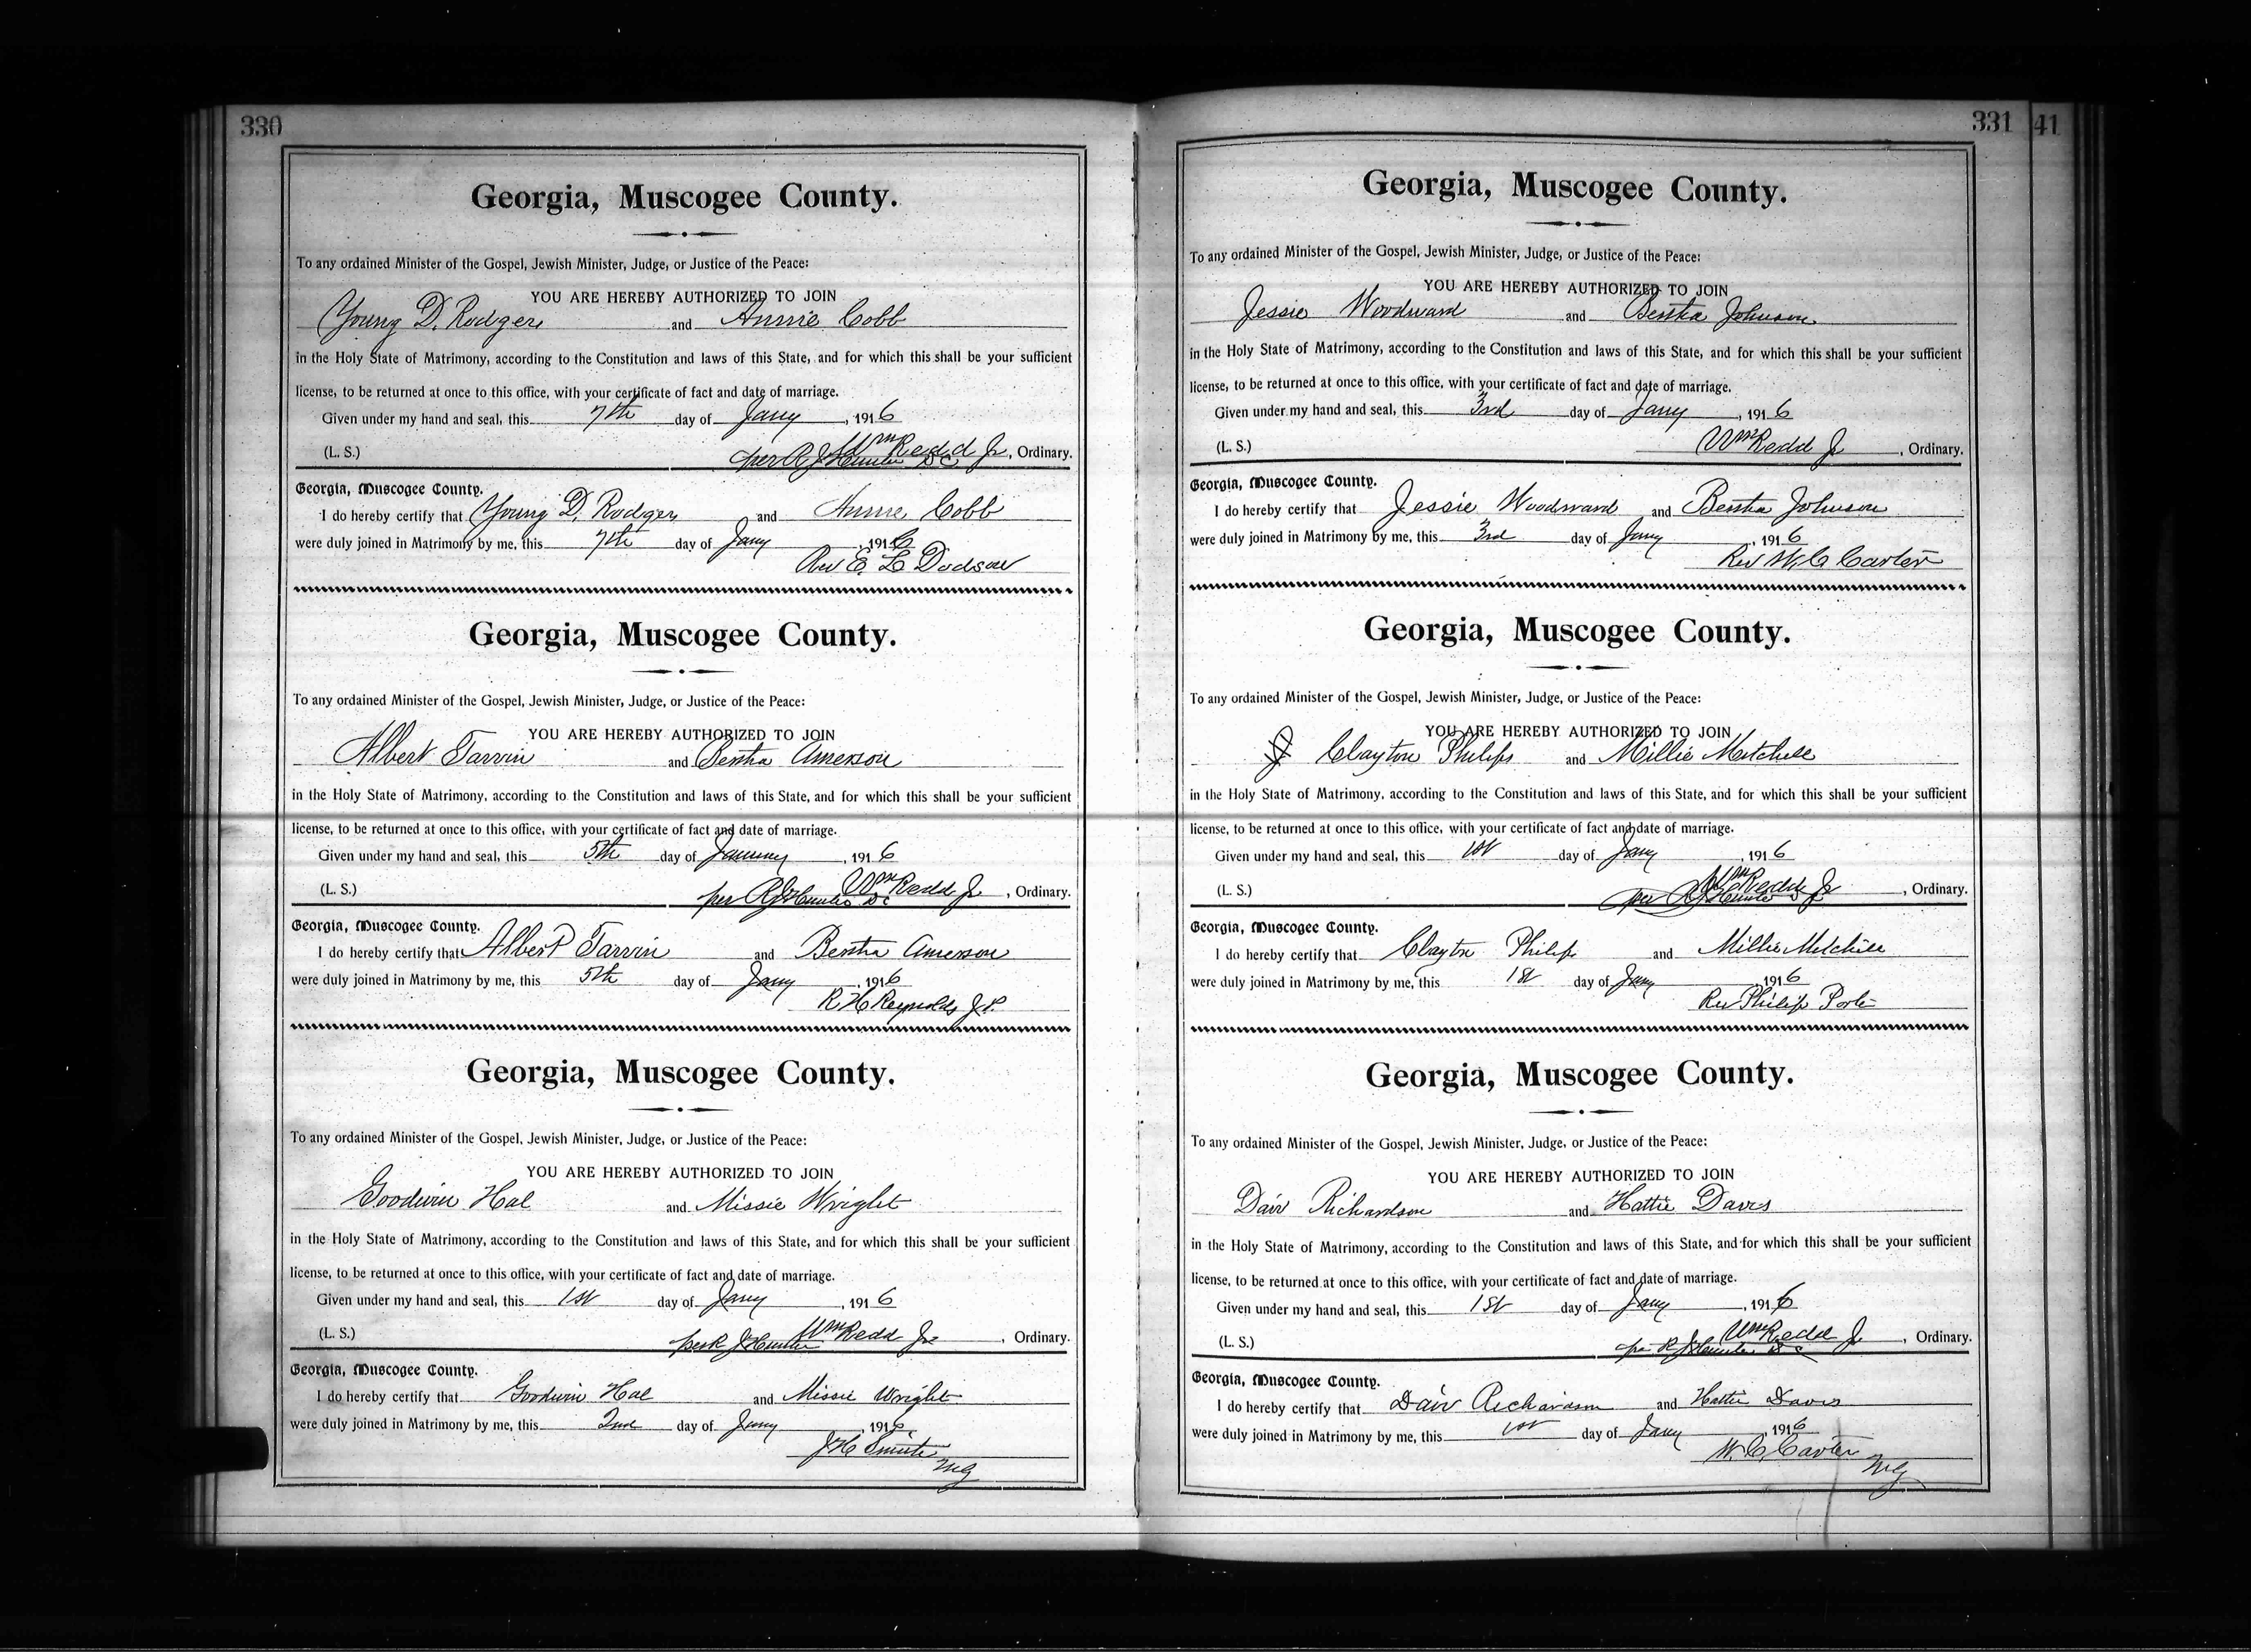 330
Georgia, Muscogee County.
To any ordained Minister of the Gospel, Jewish Minister, Judge, or Justice of the Peace:
YOU ARE HEREBY AUTHORIZED TO JOIN
Young D. Rodgers and Annie Cobb
in the Holy State of Matrimony, according to the Constitution and laws of this State, and for which this shall be your sufficient
license, to be returned at once to this office, with your certificate of fact and date of marriage.
Given under my hand and seal, this 7th day of Jany, 1916
(L. S.) Wm Redd Jr, Ordinary.
per R J Hunter D C
Georgia, Muscogee County.
I do hereby certify that Young D. Rodgers and Annie Cobb
were duly joined in Matrimony by me, this 7th day of Jany, 1916
Rev E. L. Dodson
Georgia, Muscogee County.
To any ordained Minister of the Gospel, Jewish Minister, Judge, or Justice of the Peace:
YOU ARE HEREBY AUTHORIZED TO JOIN
Albert Tarvin and Bertha Amerson
in the Holy State of Matrimony, according to the Constitution and laws of this State, and for which this shall be your sufficient
license, to be returned at once to this office, with your certificate of fact and date of marriage.
Given under my hand and seal, this 5th day of January, 1916
(L. S.) Wm Redd Jr, Ordinary.
per R J Hunter D C
Georgia, Muscogee County.
I do hereby certify that Albert Tarvin and Bertha Amerson
were duly joined in Matrimony by me, this 5th day of Jany, 1916
R H Reynolds J.P.
Georgia, Muscogee County.
To any ordained Minister of the Gospel, Jewish Minister, Judge, or Justice of the Peace:
YOU ARE HEREBY AUTHORIZED TO JOIN
Goodwin Hal and Missie Wright
in the Holy State of Matrimony, according to the Constitution and laws of this State, and for which this shall be your sufficient
license, to be returned at once to this office, with your certificate of fact and date of marriage.
Given under my hand and seal, this 1st day of Jany, 1916
(L. S.) Wm Redd Jr, Ordinary.
per R J Hunter
Georgia, Muscogee County.
I do hereby certify that Goodwin Hal and Missie Wright
were duly joined in Matrimony by me, this 2nd day of Jany, 1916
J H Smith
MG
331
41
Georgia, Muscogee County.
To any ordained Minister of the Gospel, Jewish Minister, Judge, or Justice of the Peace:
YOU ARE HEREBY AUTHORIZED TO JOIN
Jessie Woodward and Bertha Johnson
in the Holy State of Matrimony, according to the Constitution and laws of this State, and for which this shall be your sufficient
license, to be returned at once to this office, with your certificate of fact and date of marriage.
Given under my hand and seal, this 3rd day of Jany, 1916
(L. S.) Wm Redd Jr, Ordinary.
Georgia, Muscogee County.
I do hereby certify that Jessie Woodward and Bertha Johnson
were duly joined in Matrimony by me, this 3rd day of Jany, 1916
Rev W. C Carter
Georgia, Muscogee County.
To any ordained Minister of the Gospel, Jewish Minister, Judge, or Justice of the Peace:
YOU ARE HEREBY AUTHORIZED TO JOIN
Clayton Philips and Millie Mitchell
in the Holy State of Matrimony, according to the Constitution and laws of this State, and for which this shall be your sufficient
license, to be returned at once to this office, with your certificate of fact and date of marriage.
Given under my hand and seal, this 1st day of Jany, 1916
(L. S.) Wm Redd Jr, Ordinary.
per R J Hunter
Georgia, Muscogee County.
I do hereby certify that Clayton Philips and Millie Mitchell
were duly joined in Matrimony by me, this 1st day of Jany 1916
Rev Philip
Georgia, Muscogee County.
To any ordained Minister of the Gospel, Jewish Minister, Judge, or Justice of the Peace:
YOU ARE HEREBY AUTHORIZED TO JOIN
Dair Richardson and Hattie Davis
in the Holy State of Matrimony, according to the Constitution and laws of this State, and for which this shall be your sufficient
license, to be returned at once to this office, with your certificate of fact and date of marriage.
Given under my hand and seal, this 1st day of Jany, 1916
(L. S.) Wm Redd Jr, Ordinary.
per R J Hunter D C
Georgia, Muscogee County.
I do hereby certify that Dair Richardson and Hattie Davis
were duly joined in Matrimony by me, this 1st day of Jany, 1916
W. C. Carter
MG